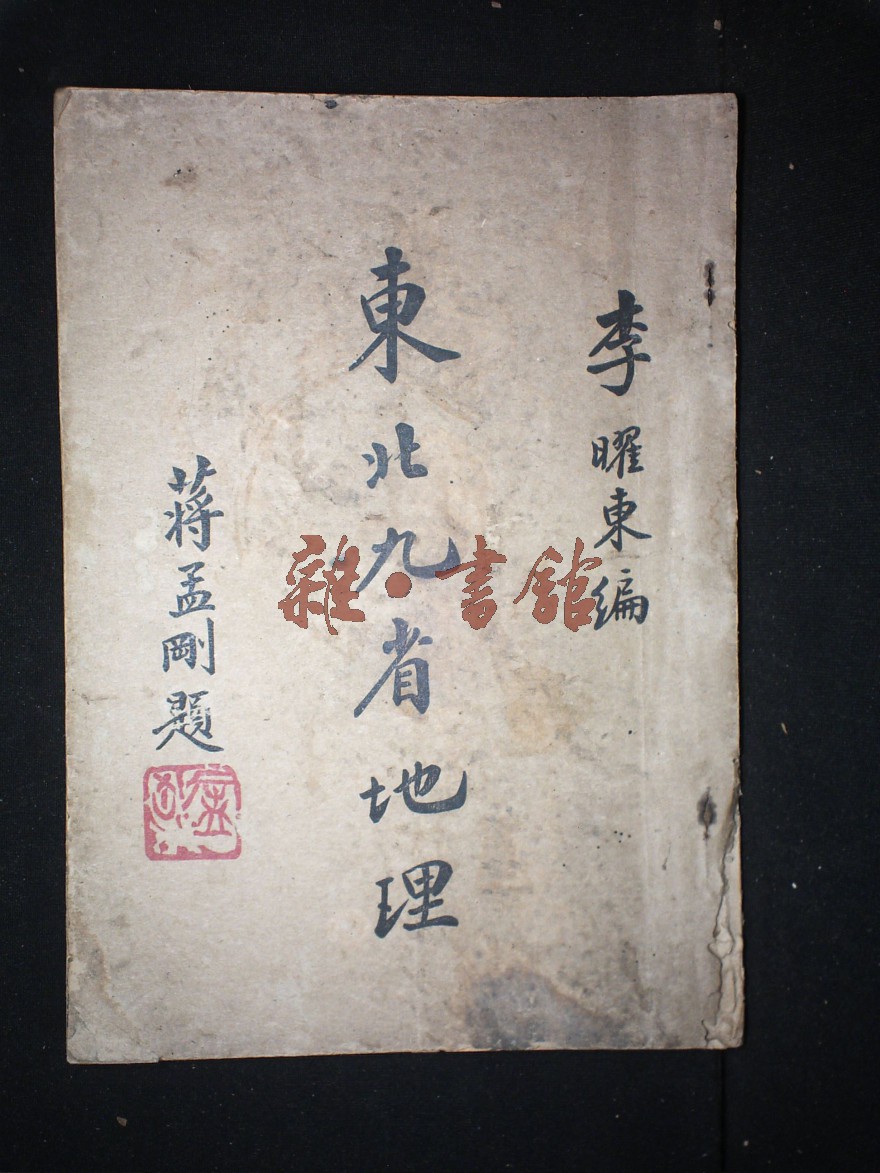 李曜東編
東北九省地理
蔣孟剛題
雜·書館